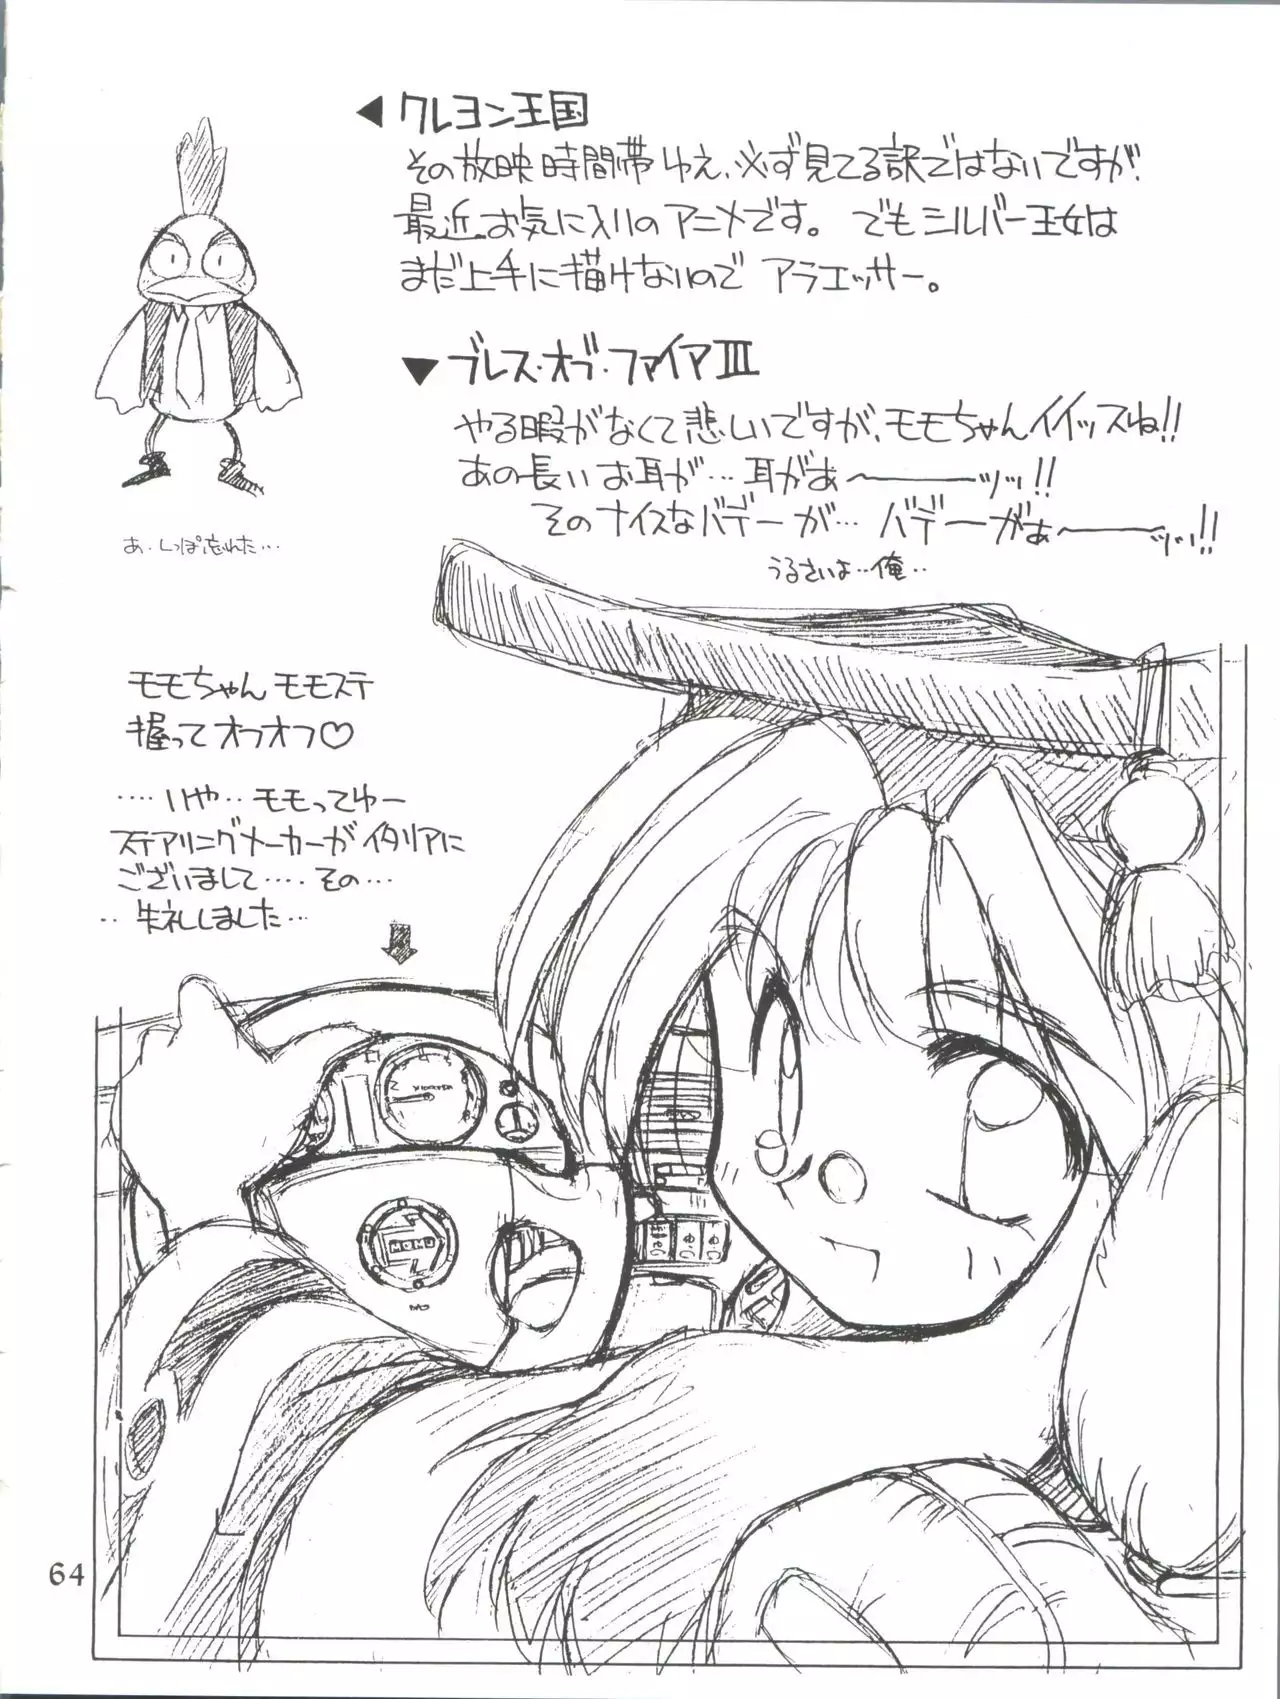 ◀ クレヨン王国
その放映時間帯ゆえ、必ず見てる訳ではないですが、
最近お気に入りのアニメです。でもシルバー王女は
まだ上手に描けないので アラエッサー。
あ、しっぽ忘れた…
▼ ブレス・オブ・ファイアⅢ
やる暇がなくて悲しいですが、モモちゃんイイッスね!!
あの長いお耳が… 耳がぁ〜――ッッ!!
そのナイスなバデーが… バデーがぁ〜――ッッ!!
うるさいよ…俺…
モモちゃん モモステ
握ってオフオフ♡
….いや‥モモってゆー
ステアリングメーカーがイタリアに
ございまして….. その…
‥失礼しました…
MOMO
64